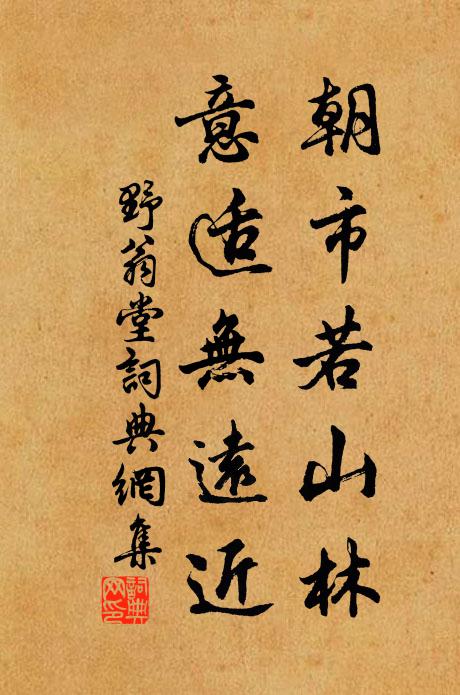 朝市若山林
意适無遠近
野翁堂詞典網集
詞典
网印